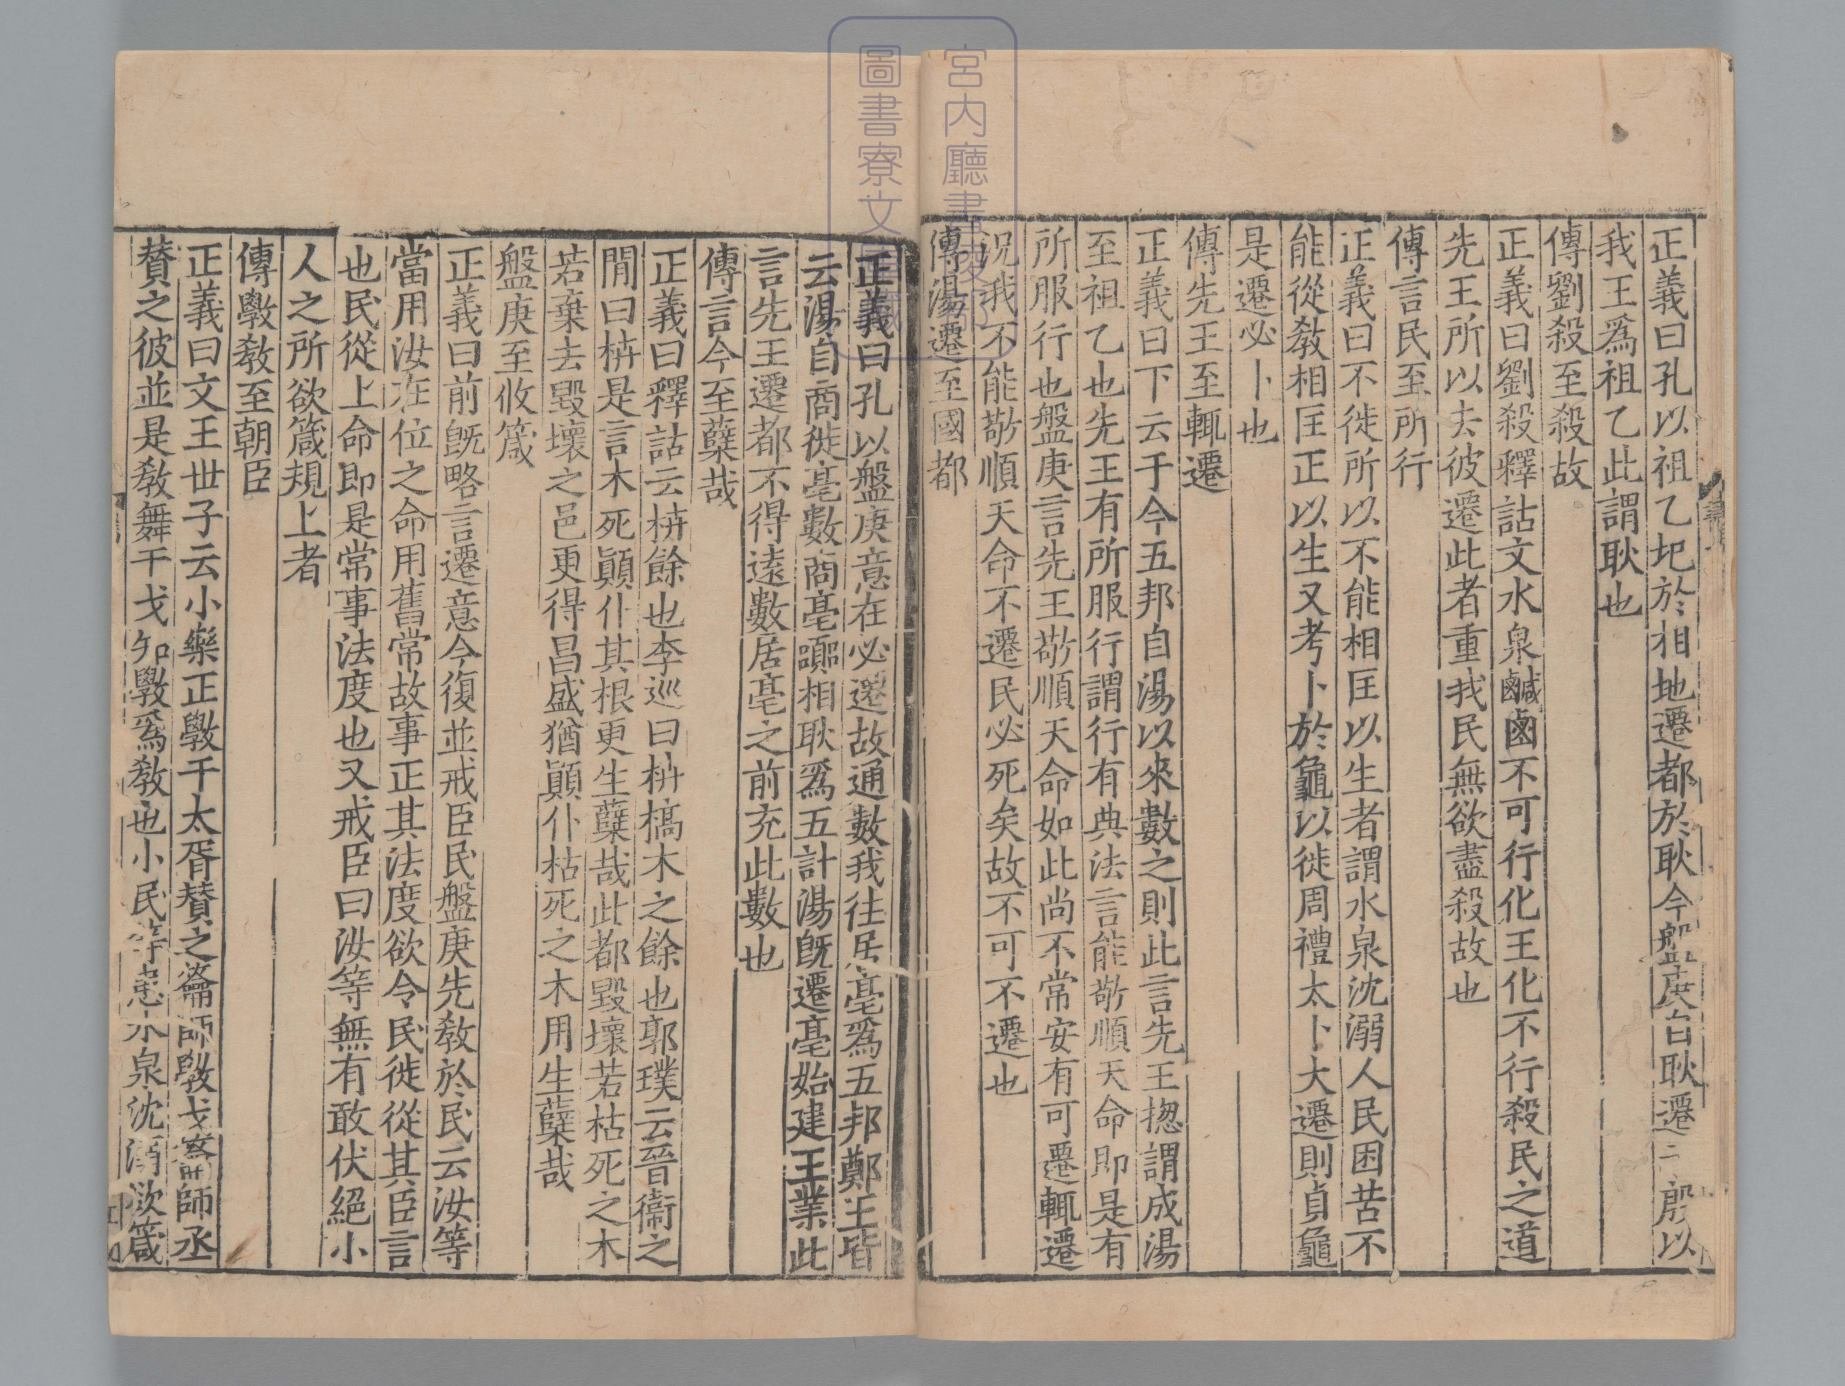 正義曰孔以祖乙圯於相地遷都於耿今盤庚自耿遷于殷以
我王爲祖乙此謂耿也
傳劉殺至殺故
正義曰劉殺釋詁文水泉鹹鹵不可行化王化不行殺民之道
先王所以去彼遷此者重我民無欲盡殺故也
傳言民至所行
正義曰不徙所以不能相匡以生者謂水泉沈溺人民困苦不
能從敎相匡正以生又考卜於龜以徙周禮太卜大遷則貞龜
是遷必卜也
傳先王至輒遷
正義曰下云于今五邦自湯以來數之則此言先王揔謂成湯
至祖乙也先王有所服行謂行有典法言能敬順天命即是有
所服行也盤庚言先王敬順天命如此尚不常安有可遷輒遷
況我不能敬順天命不遷民必死矣故不可不遷也
傳湯遷至國都
正義曰孔以盤庚意在必遷故通數我往居亳爲五邦鄭王皆
云湯自商徙亳數商亳囂相耿爲五計湯旣遷亳始建王業此
言先王遷都不得遠數居亳之前充此數也
傳言今至蘖哉
正義曰釋詁云枿餘也李巡曰枿槁木之餘也郭璞云晉衞之
閒曰枿是言木死顚仆其根更生蘖哉此都毀壞若枯死之木
若棄去毀壞之邑更得昌盛猶顚仆枯死之木用生蘖哉
盤庚至攸箴
正義曰前旣略言遷意今復並戒臣民盤庚先敎於民云汝等
當用汝在位之命用舊常故事正其法度欲令民徙從其臣言
也民從上命即是常事法度也又戒臣曰汝等無有敢伏絕小
人之所欲箴規上者
傳斆敎至朝臣
正義曰文王世子云小樂正斆干太胥贊之籥師斆戈籥師丞
贊之彼並是敎舞干戈知斆爲敎也小民等患水泉沈溺欲箴
宮内廳書陵部
圖書寮文庫藏